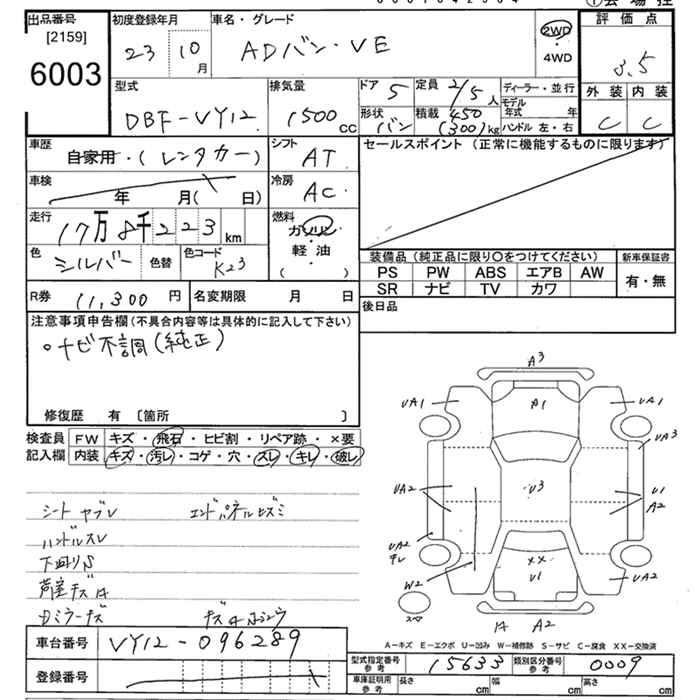 出品番号
[2159]
6003
初度登録年月
23 10 月
車名・グレード
ADバン・VE
2WD
4WD
評価点
3.5
外装 内装
C C
型式
DBF-VY12
排気量
1500 cc
ドア 5
定員 2/5人
形状 バン
積載 450 (300)kg
ディーラー・並行
モデル年式 年
ハンドル 左・右
車歴
自家用・(レンタカー)
シフト
AT
セールスポイント (正常に機能するものに限ります)
車検
年 月( 日)
冷房
AC
走行
17万8千223 km
燃料
ガソリン
軽油
( )
色
シルバー
色替
色コード
K23
装備品 (純正品に限り○をつけてください)
新車保証書
PS PW ABS エアB AW
SR ナビ TV カワ
有・無
R券 11,300 円
名変期限 月 日
後日品
注意事項申告欄(不具合内容等は具体的に記入して下さい)
○ナビ不調(純正)
修復歴 有 〔箇所 〕
検査員
記入欄
FW キズ・飛石・ヒビ割・リペア跡・×要
内装 キズ・汚レ・コゲ・穴・スレ・キレ・破レ
シートヤブレ エンドパネルヒズミ
ハンドルスレ
下回りS
A3
UA1 A1 UA1
UA3
UA2 U3 U1
A2
UA2
W2 XX
U1 UA2
スペア
A2
A-キズ E-エクボ U-凹み W-補修跡 S-サビ C-腐食 XX-交換済
車台番号
VY12-096289
登録番号
型式指定番号
参考
15633
類別区分番号
参考
0009
車庫証明用
参考
長さ cm 幅 cm 高さ cm